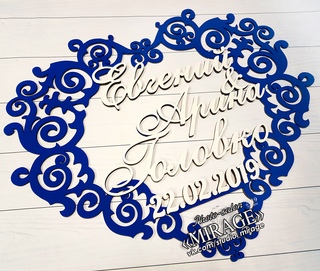 Евгений
&
Арина
Головко
22.02.2019
Photo-salon
«MIRAGE»
vk.com/studio_mirage